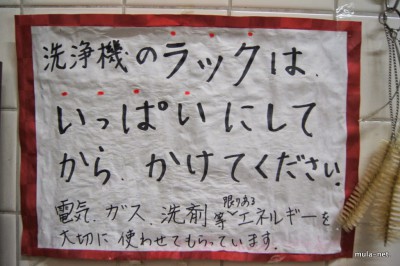 洗浄機のラックは、
いっぱいにして
から、かけてください。
電気、ガス、洗剤等限りあるエネルギーを、
大切に使わせてもらっています。
mula-net